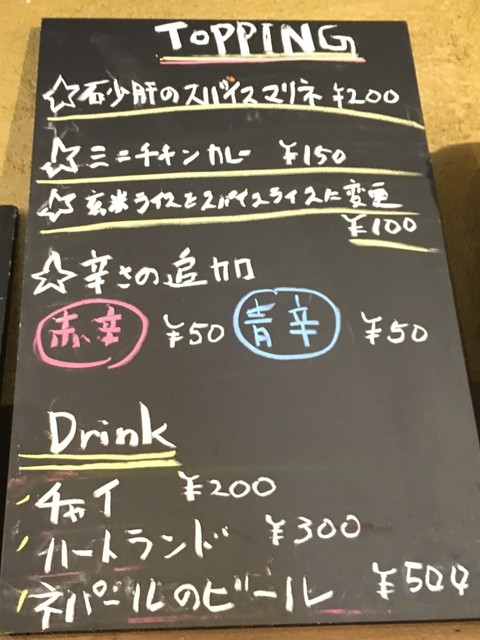 TOPPING
☆砂肝のスパイスマリネ ¥200
☆ミニチキンカレー ¥150
☆玄米ライスをスパイスライスに変更
¥100
☆辛さの追加
赤辛 ¥50 青辛 ¥50
Drink
チャイ ¥200
ハートランド ¥300
ネパールのビール ¥500